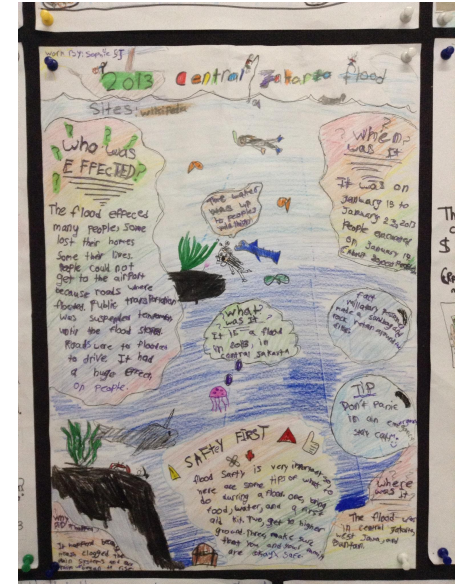 work By: Sophie
2013 Central Jakarta flood
Sites: wikipedia
who was
EFFECTED?
The flood effeced
many people. Some
lost their homes
Some their lives.
People could not
get to the airport
because roads where
flooded. Public transportation
was suspended
until the flood
Roads were to flooded
to drive. It had
a huge effect
on people.
The water
was up
to peoples
When
was it
It was on
January 15 to
January 23, 2013
People
on January 18
about
what
was it
It is a flood
in 2013, in
central Jakarta
Fact
people
make a
rock
TIP
Don't panic
in an
stay calm.
SAFTY FIRST
flood safty is very important so
here are some tips on what to
do during a flood. One, bring
food, water, and a first
aid kit. Two, get to higher
ground. Three, make sure
that you and your family
are okay/safe
Where
was it?
The flood was
in central Jakarta,
west Java, and
Banten.
Why
It happend
clogged the